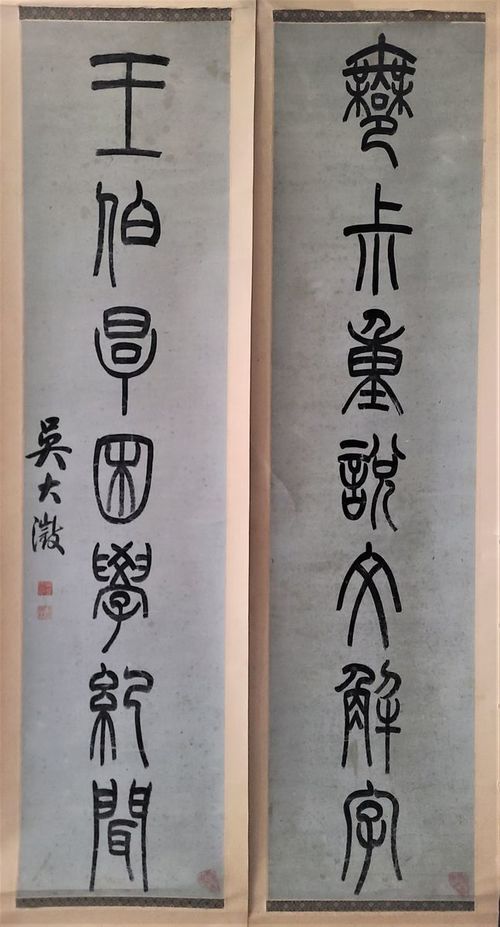 鄦尗重說文解字
王伯㫗困學紀聞
吳大澂